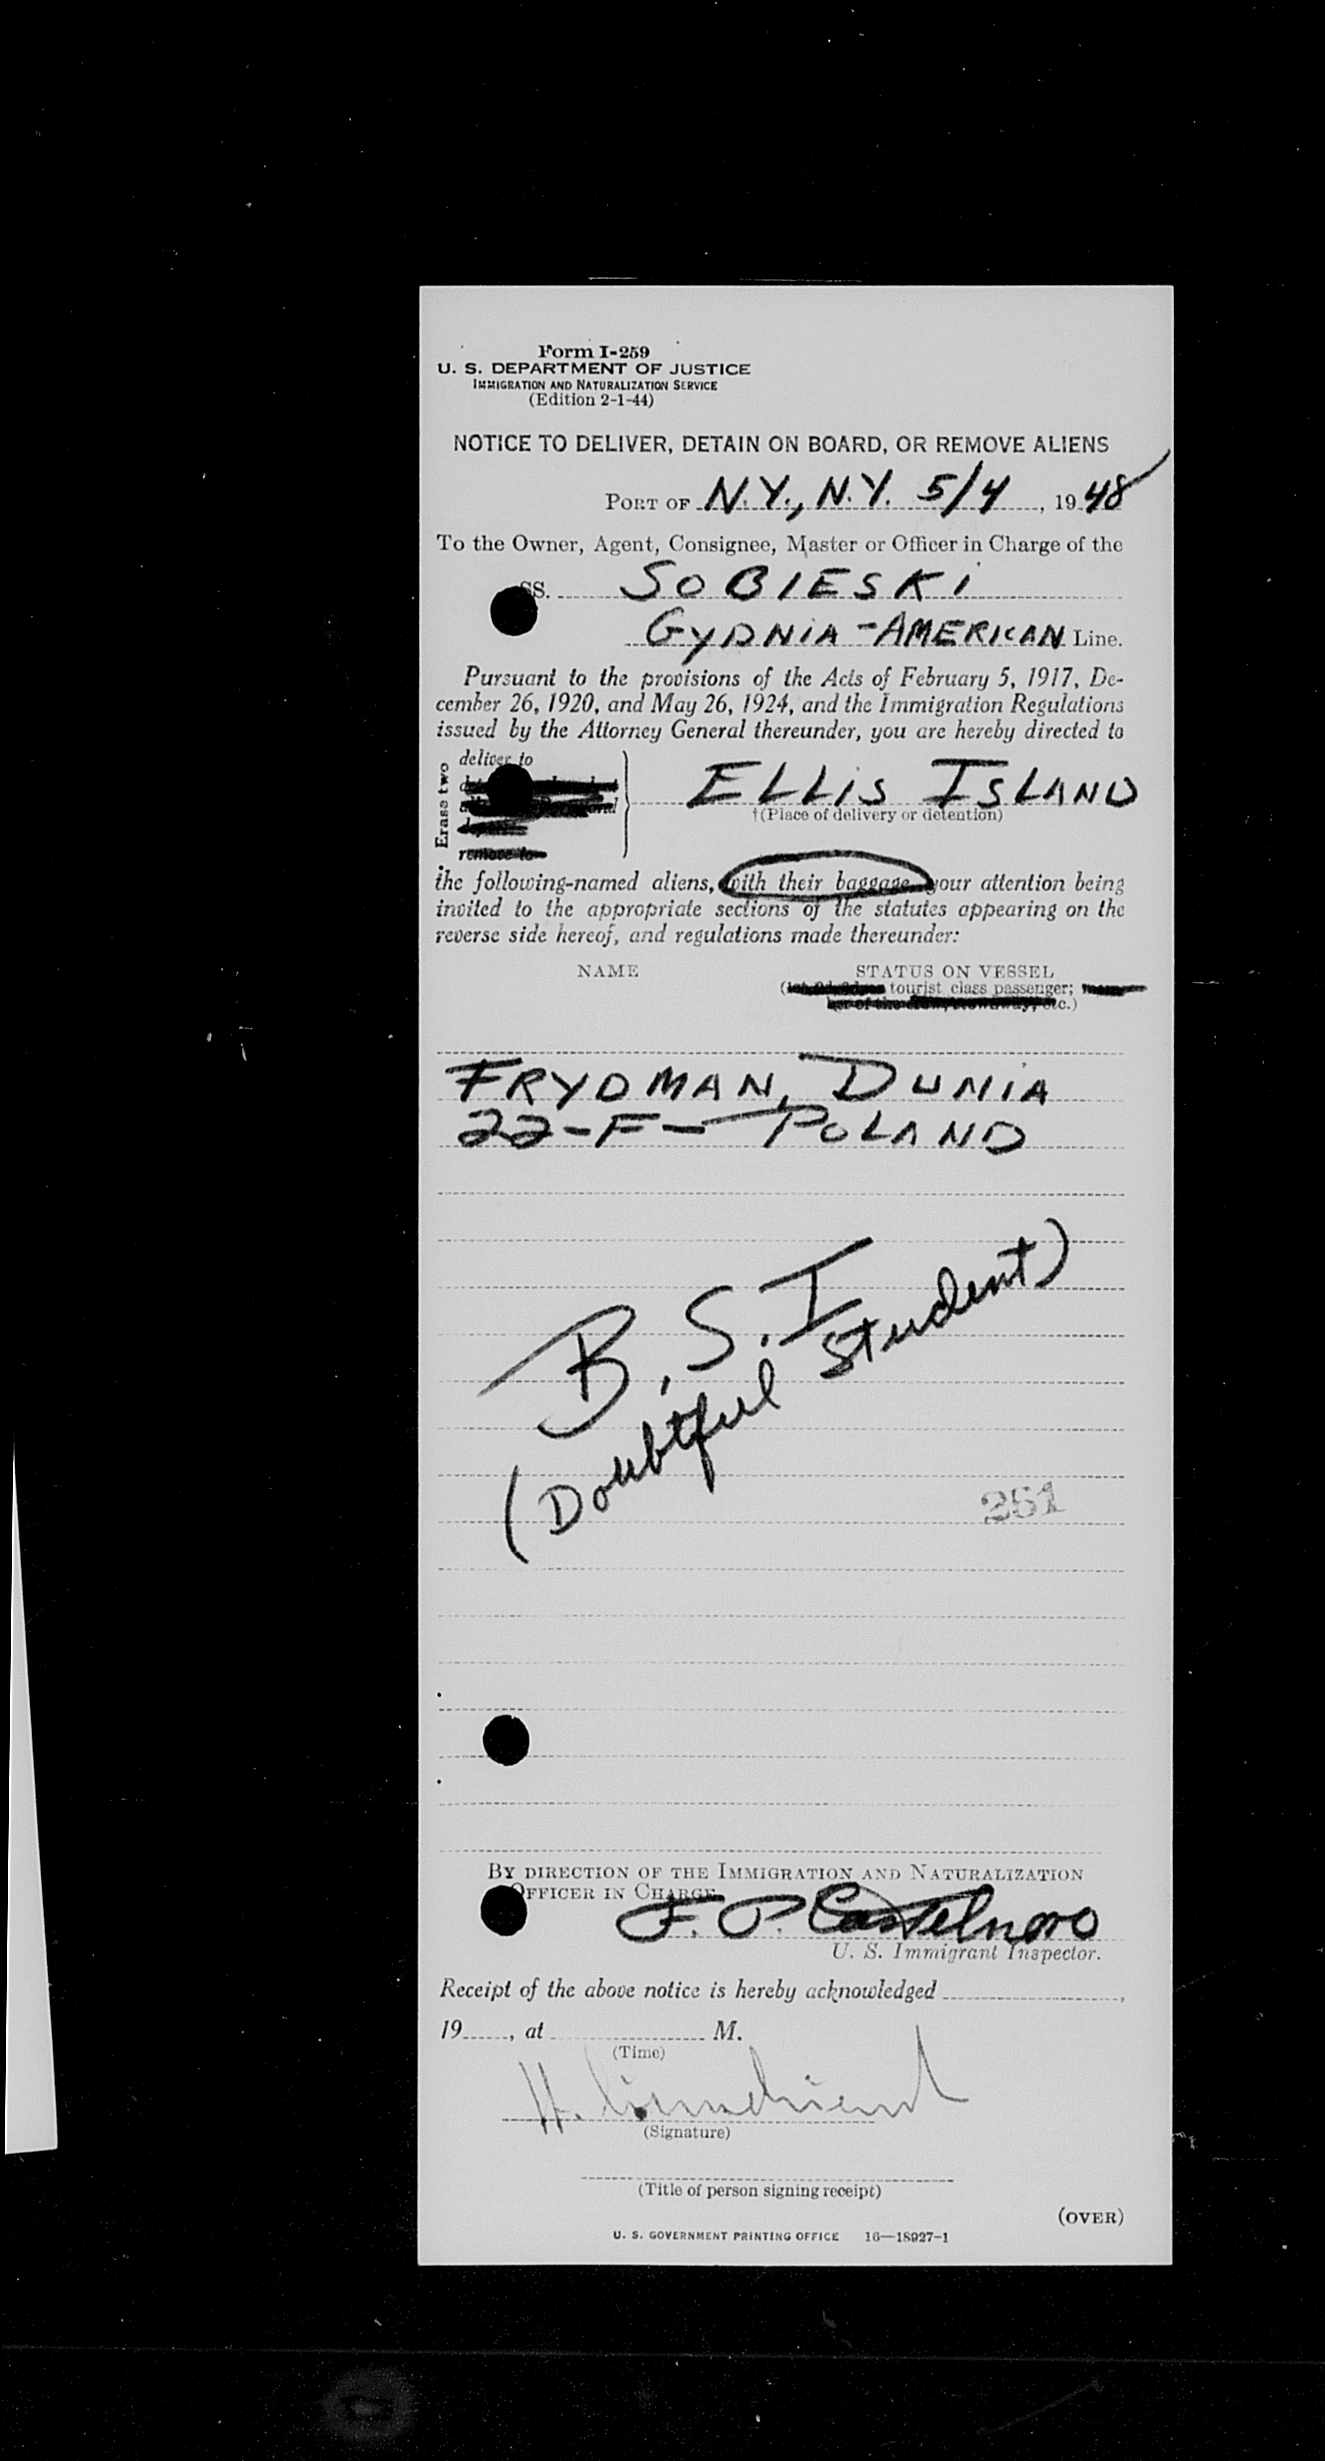 Form I-259
U. S. DEPARTMENT OF JUSTICE
IMMIGRATION AND NATURALIZATION SERVICE
(Edition 2-1-44)
NOTICE TO DELIVER, DETAIN ON BOARD, OR REMOVE ALIENS
PORT OF N.Y., N.Y. 5/4, 1948
To the Owner, Agent, Consignee, Master or Officer in Charge of the
SS. SOBIESKI
GYDNIA-AMERICAN Line.
Pursuant to the provisions of the Acts of February 5, 1917, De-
cember 26, 1920, and May 26, 1924, and the Immigration Regulations
issued by the Attorney General thereunder, you are hereby directed to
Erase two
deliver to
remove to
ELLIS ISLAND
†(Place of delivery or detention)
the following-named aliens, with their baggage, your attention being
invited to the appropriate sections of the statutes appearing on the
reverse side hereof, and regulations made thereunder:
NAME STATUS ON VESSEL
tourist class passenger;
etc.)
FRYDMAN, DUNIA
22-F-POLAND
B.S.I
(Doubtful Student)
251
BY DIRECTION OF THE IMMIGRATION AND NATURALIZATION
OFFICER IN CHARGE
F. P. Castelnovo
U. S. Immigrant Inspector.
Receipt of the above notice is hereby acknowledged ,
19 , at M.
(Time)
H.
(Signature)
(Title of person signing receipt)
(OVER)
U. S. GOVERNMENT PRINTING OFFICE 16—18927-1